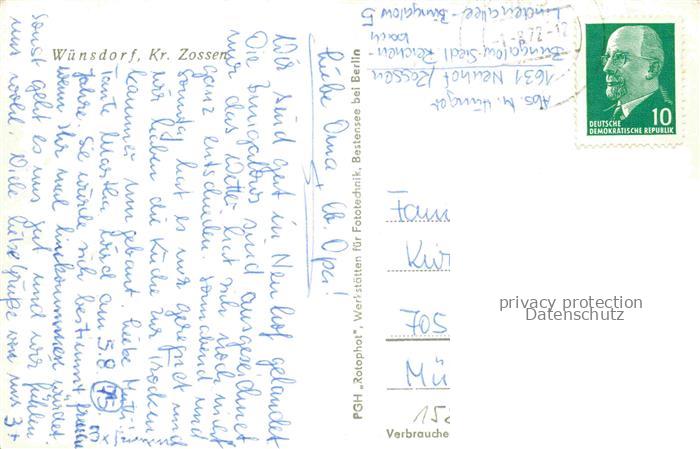 Wünsdorf, Kr. Zossen
Liebe Oma + lb. Opa!
Wir sind gut in Neuhof gelandet
Die Bungalows sind ausgezeichnet
nur das Wetter hat sich noch nicht
ganz entschieden. Sonnabend und
Sonntag hat es nur geregnet und
wir haben die Küche zur Trocken
kammer umgebaut. Liebe Mutti,
Tante Martha wird am 5.8. 75
Jahre. Sie würde sich bestimmt freuen
wenn Ihr mal hinkommen würdet.
Sonst geht es uns gut und wir fühlen
uns wohl. Viele liebe Grüße von uns 3+
PGH „Rotophot", Werkstätten für Fototechnik, Bestensee bei Berlin
Abs. M.
Bungalow-Siedl. Reichen-
bach
1631 Neuhof/Zossen
Lindenallee - Bungalow 5
10
DEUTSCHE
DEMOKRATISCHE REPUBLIK
Fam
705
Mü
privacy protection
Datenschutz
Verbrauche